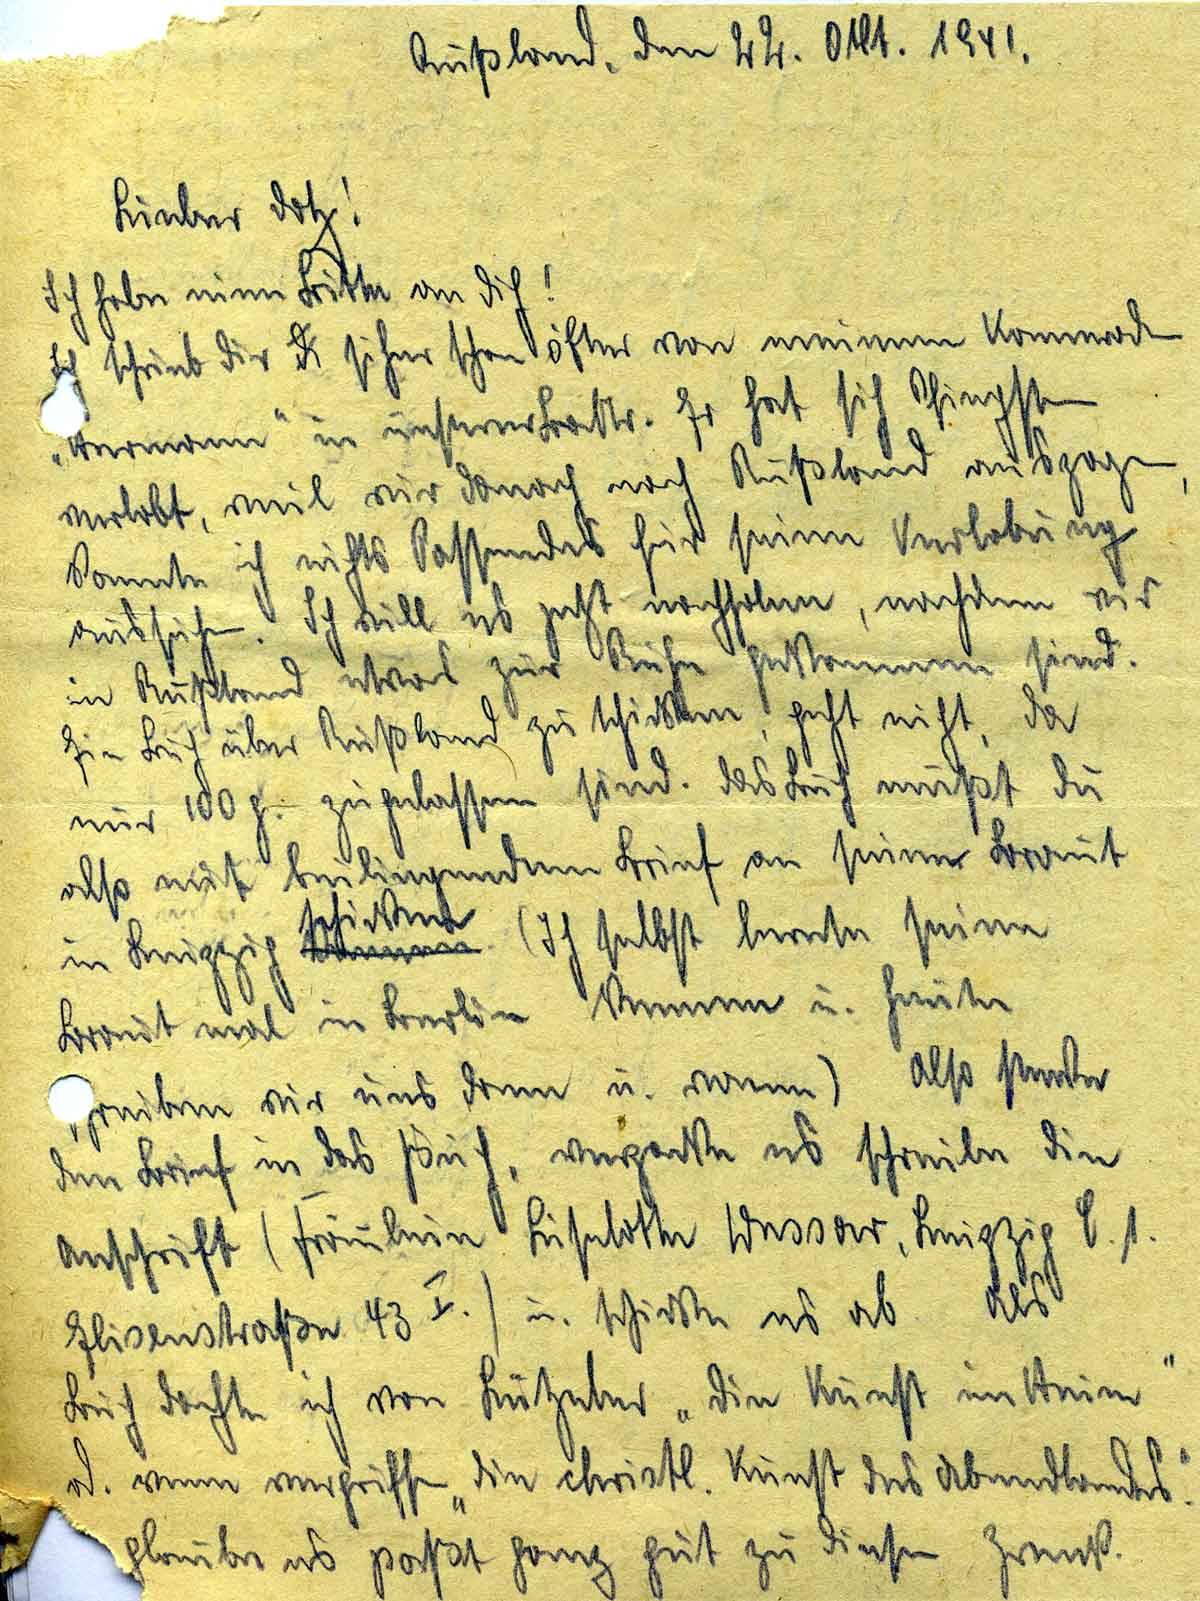 Rußland, den 22. Okt. 1941.
Lieber Dotz!
Ich habe eine Bitte an Dich!
Ich schrieb Dir sicher schon öfter von meinem Kamerade
„Hermann" in unserer Battr. Er hat sich Pfingsten
verlobt, weil wir danach nach Rußland auszogen,
konnte ich nichts Passendes für seine Verlobung
aussuchen. Ich will es jetzt nachholen, nachdem wir
in Rußland etwas zur Ruhe gekommen sind.
Ein Buch über Rußland zu schicken, geht nicht, da
nur 100 g. zugelassen sind. Das Buch mußt Du
also mit beiliegendem Brief an seine Braut
in Leipzig schicken. (Ich selbst lernte seine
Braut mal in Berlin kennen u. heute
schreiben wir uns dann u. wann) Also stecke
den Brief in das Buch, verpacke es schreibe die
Anschrift (Fräulein Liselotte Wesser, Leipzig C. 1.
Elisenstraße 43 I.) u. schicke es ab. Als
Buch dachte ich von Lützeler „Die Kunst im Heim"
od. wenn vergriffen „Die christl. Kunst des Abendlandes".
glaube es paßt ganz gut zu diesem Zweck.